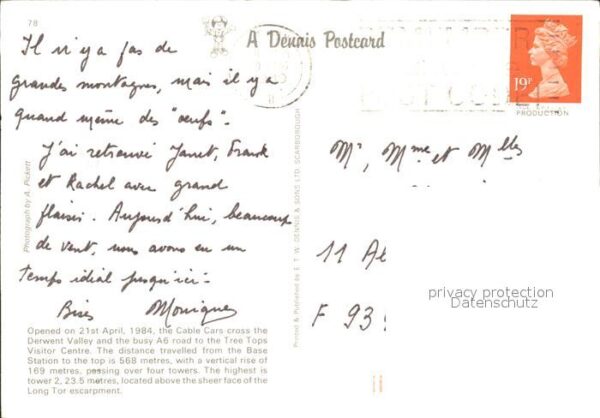 78
A Dennis Postcard
19P
PRODUCTION
Il n'y a pas de
grandes montagnes, mais il y a
quand même des "oeufs".
J'ai retrouvé Janet, Frank
et Rachel avec grand
plaisir. Aujourd'hui, beaucoup
de vent, nous avons eu un
temps idéal jusqu'ici.
Bises Monique
Photograph by A. Pickett
Printed & Published by E. T. W. DENNIS & SONS LTD. SCARBOROUGH
Mr, Mme et Mlles
11 A
F 93
privacy protection
Datenschutz
Opened on 21st April, 1984, the Cable Cars cross the
Derwent Valley and the busy A6 road to the Tree Tops
Visitor Centre. The distance travelled from the Base
Station to the top is 568 metres, with a vertical rise of
169 metres, passing over four towers. The highest is
tower 2, 23.5 metres, located above the sheer face of the
Long Tor escarpment.